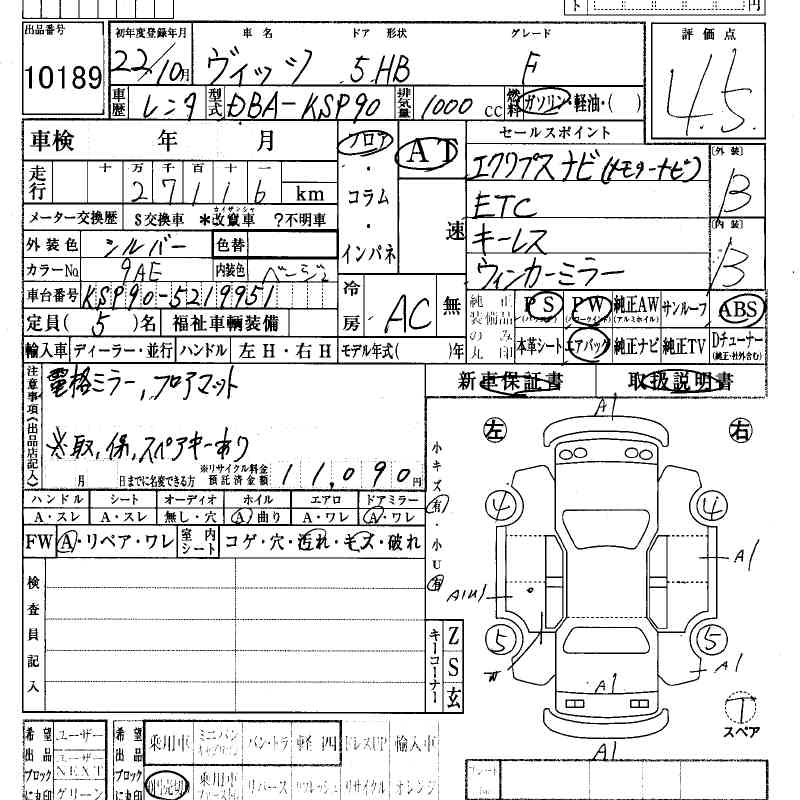 ト 円
出品番号 初年度登録年月 車名 ドア 形状 グレード 評価点
10189 22/10月 ヴィッツ 5 HB F 4.5
車歴 レンタ 型式 DBA-KSP90 排気量 1000 cc 燃料 ガソリン・軽油・( )
車検 年 月 フロア AT セールスポイント
走行 十 万 千 百 十 一 エクリプスナビ(メモリーナビ) [外装] B
2 7 1 1 6 km ・ ETC
メーター交換歴 S交換車 *改竄車 ?不明車 コラム 速 キーレス [内装] B
外装色 シルバー 色替 ・ ウィンカーミラー
カラーNo 9AE 内装色 ベージュ インパネ
車台番号 KSP90-5219951 冷房 AC 無 純正装備品のみ丸印 PS PW 純正AW サンルーフ ABS
(パワーウインド) (アルミホイル)
定員( 5 )名 福祉車輌装備 本革シート エアバック 純正ナビ 純正TV Dチューナー
(純正・社外含む)
輸入車 ディーラー・並行 ハンドル 左H・右H モデル年式( )年
注意事項(出品店記入) 電格ミラー,フロアマット 新車保証書 取扱説明書
※取,保,スペアキーあり
月 日までに名変できる方 ※リサイクル料金預託済金額 11,090円
ハンドル シート オーディオ ホイル エアロ ドアミラー
A・スレ A・スレ 無し・穴 A 曲り A・ワレ A・ワレ
FW A・リペア・ワレ 室内シート コゲ・穴・汚れ・キズ・破れ
小キズ 有・小U 有
左 A1 右
4 4
A1
A1U1
5 5
W A1
A1
A1
T
スペア
検査員記入
キーコーナー Z S 玄
希望出品ブロックに丸印 ユーザー ユーザーNEXT グリーン
希望出品ブロックに丸印 乗用車 ミニバン バン・トラ 軽四 ドレスUP 輸入車
乗用車 リバース リフレッシュ リサイクル オレンジ